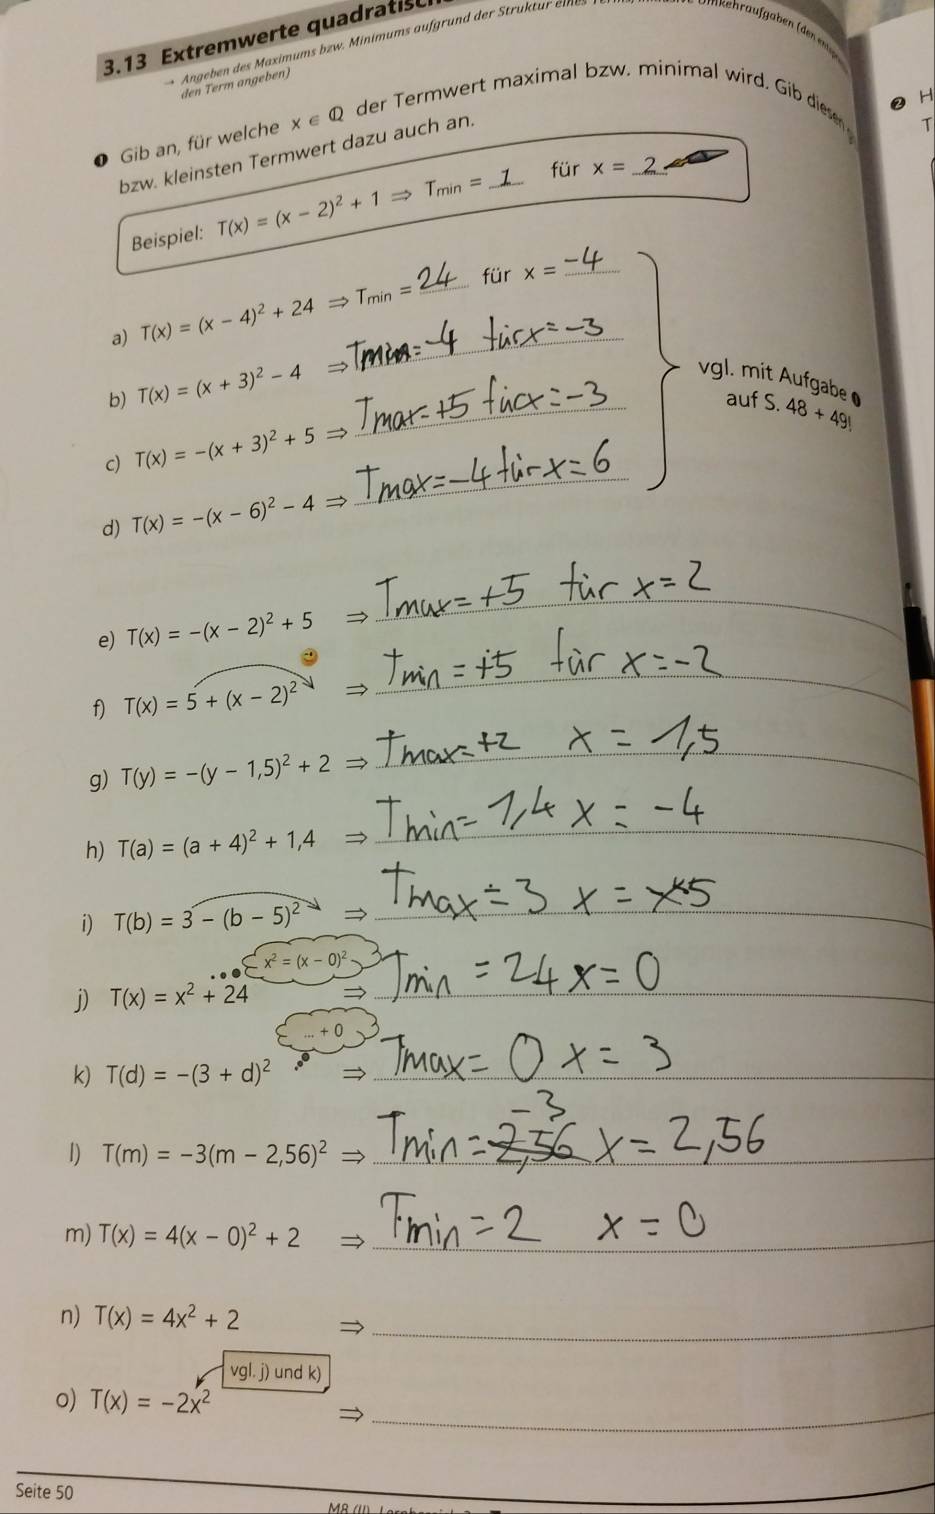 3.13 Extremwerte
→ Angeben des Maximums bzw. Minimums aufgrund der Struktur
den Term angeben)
❶ Gib an, für welche x ∈ ℚ der Termwert maximal bzw. minimal wird. Gib diesen
bzw. kleinsten Termwert dazu auch an.
Beispiel: T(x) = (x − 2)² + 1 ⇒ Tmin = 1 für x = 2
a) T(x) = (x − 4)² + 24 ⇒ Tmin = 24 für x = -4
b) T(x) = (x + 3)² − 4 ⇒ Tmin=-4 für x=-3
c) T(x) = −(x + 3)² + 5 ⇒ Tmax=+5 für x=-3
d) T(x) = −(x − 6)² − 4 ⇒ Tmax=-4 für x=6
vgl. mit Aufgabe ❶
auf S. 48 + 49!
e) T(x) = −(x − 2)² + 5 ⇒ Tmax=+5 für x=2
f) T(x) = 5 + (x − 2)² ⇒ Tmin=+5 für x=-2
g) T(y) = −(y − 1,5)² + 2 ⇒ Tmax=+2 x = 1,5
h) T(a) = (a + 4)² + 1,4 ⇒ Tmin=1,4 x = -4
i) T(b) = 3 − (b − 5)² ⇒ Tmax=3 x = 5
x² = (x − 0)²
j) T(x) = x² + 24 ⇒ Tmin = 24 x=0
... + 0
k) T(d) = −(3 + d)² ⇒ Tmax= 0 x = 3
-3
l) T(m) = −3(m − 2,56)² ⇒ Tmin=-2,56 x = 2,56
m) T(x) = 4(x − 0)² + 2 ⇒ Tmin=2 x = 0
n) T(x) = 4x² + 2 ⇒
vgl. j) und k)
o) T(x) = −2x² ⇒
Seite 50
❷ H
T